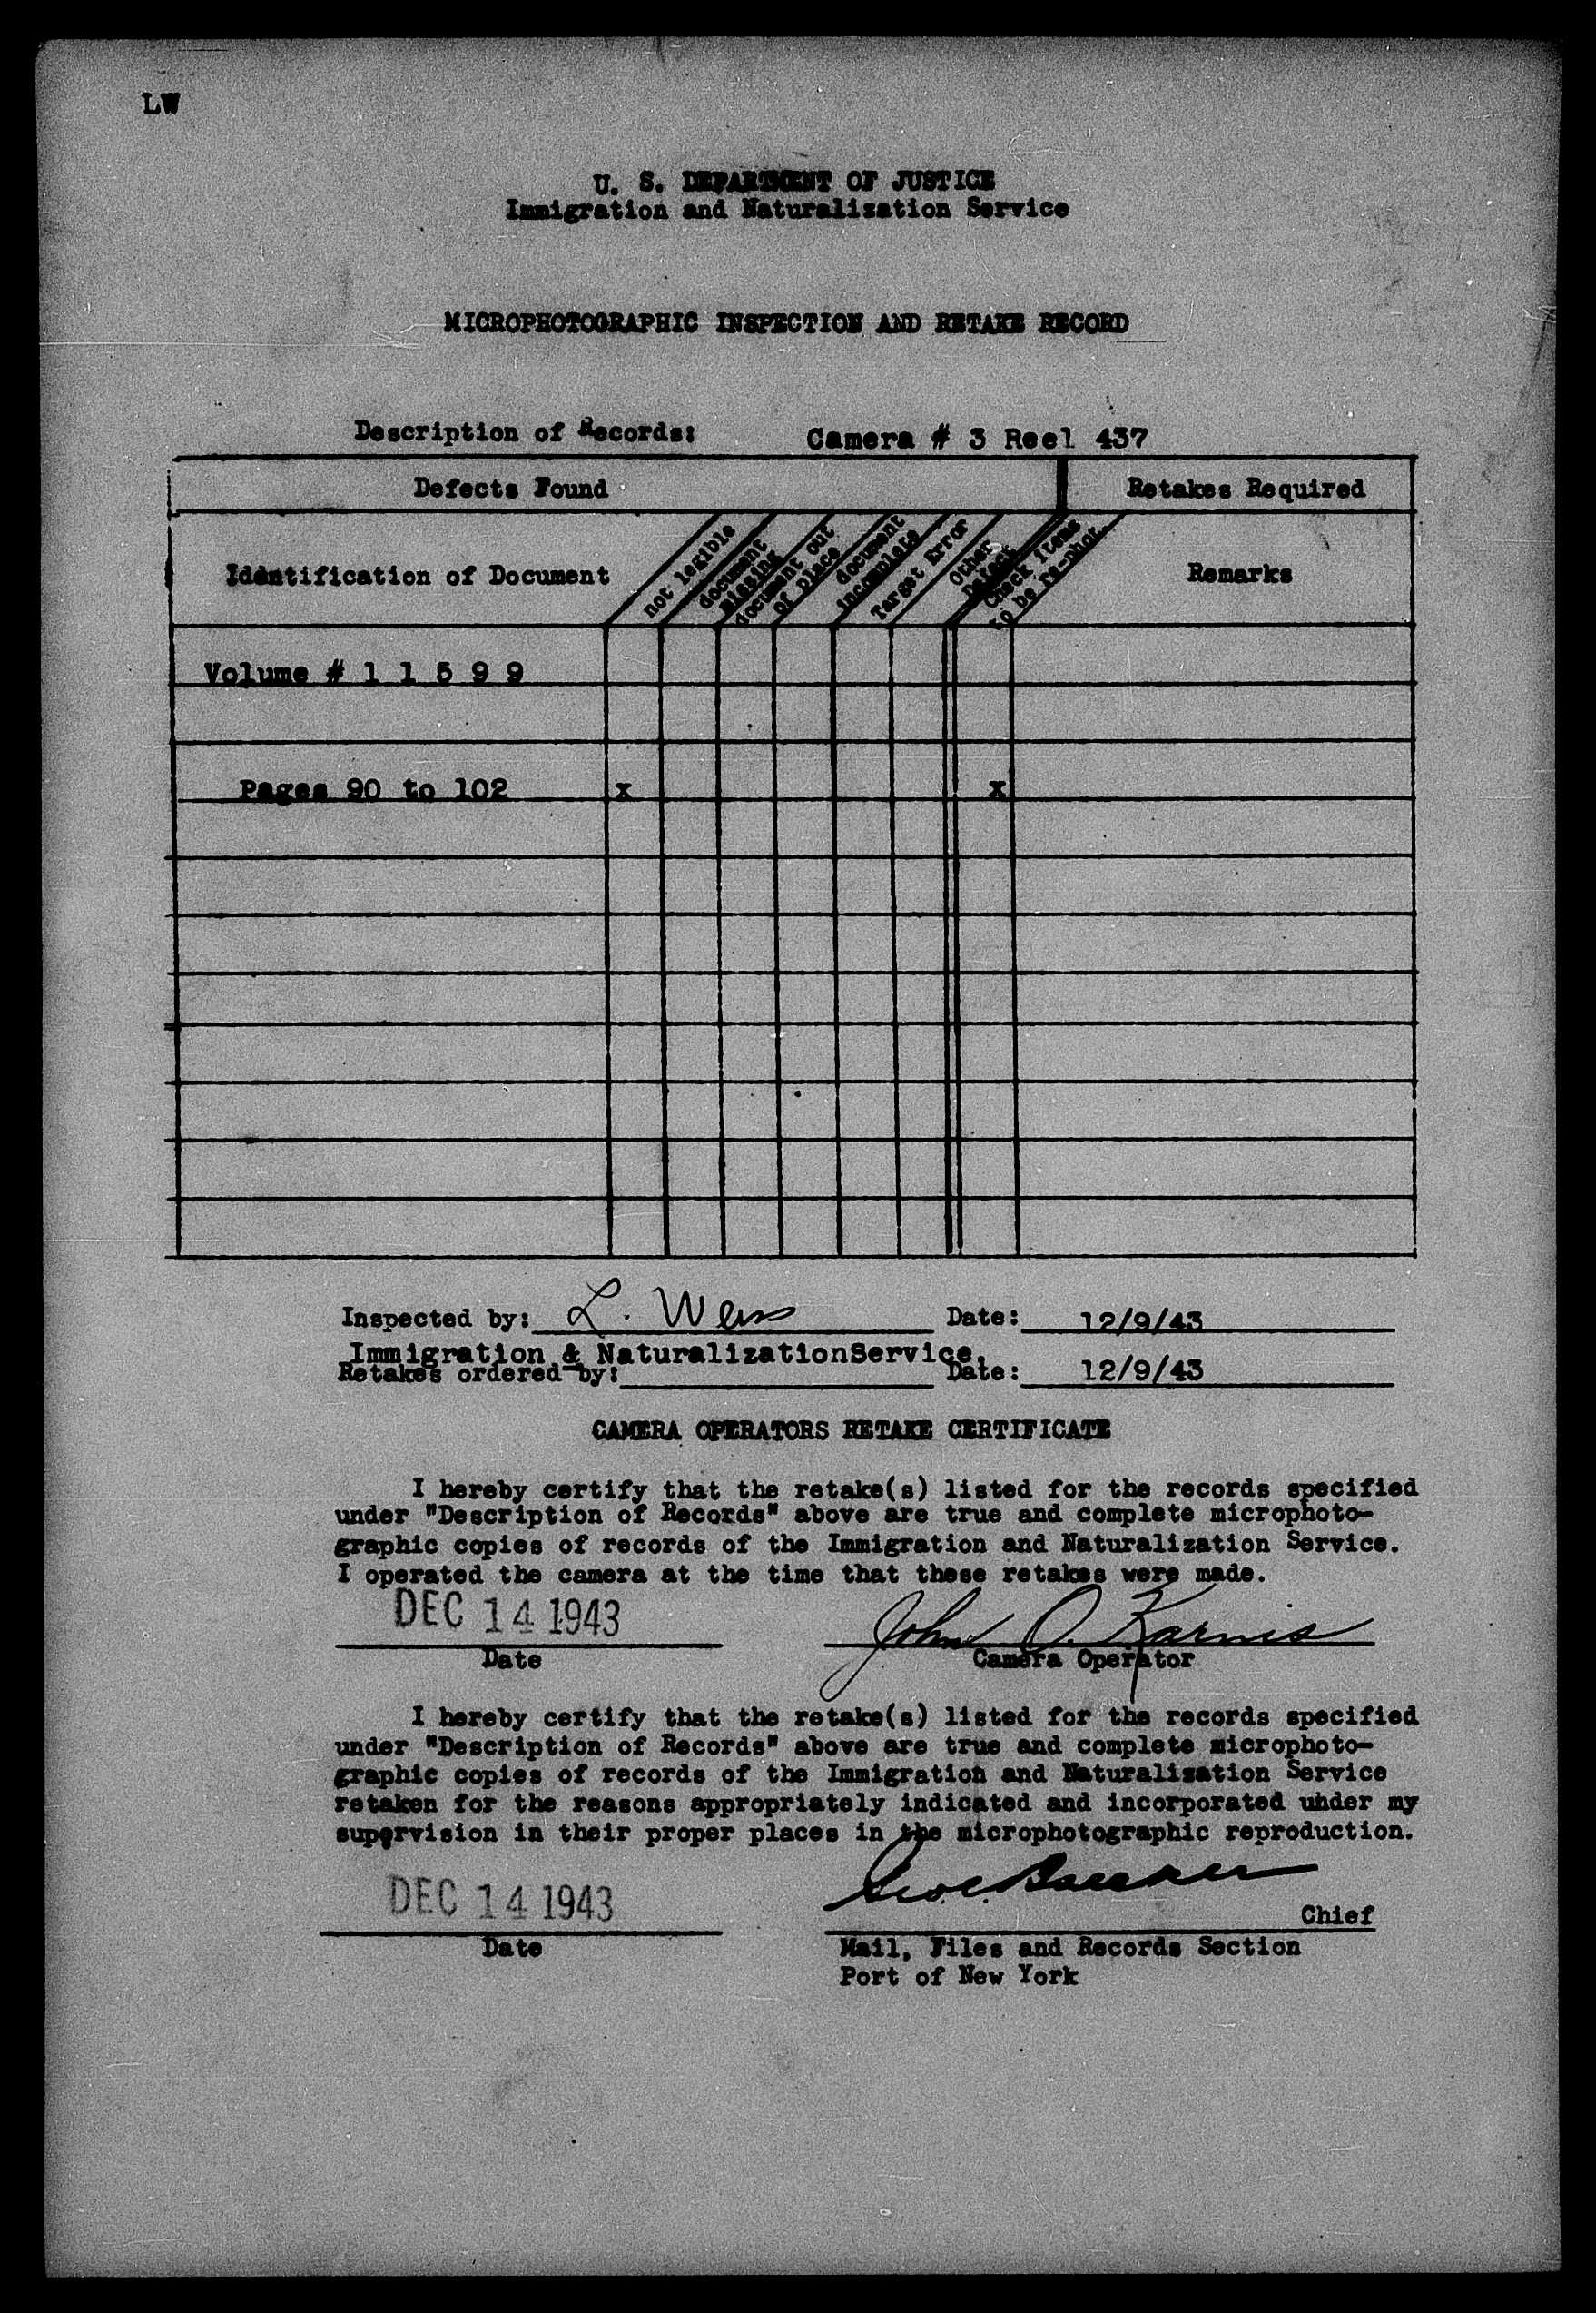 LW
U. S. DEPARTMENT OF JUSTICE
Immigration and Naturalization Service
MICROPHOTOGRAPHIC INSPECTION AND RETAKE RECORD
Description of Records: Camera # 3 Reel 437
Defects Found Retakes Required
Identification of Document
not legible
document
missing
document out
of place
document
incomplete
Target Error
Other
Defect
Check items
to be re-phot.
Remarks
Volume # 1 1 5 9 9
Pages 90 to 102 x x
Inspected by: L. Weiss Date: 12/9/43
Immigration & NaturalizationService.
Retakes ordered by: Date: 12/9/43
CAMERA OPERATORS RETAKE CERTIFICATE
I hereby certify that the retake(s) listed for the records specified
under "Description of Records" above are true and complete microphoto-
graphic copies of records of the Immigration and Naturalization Service.
I operated the camera at the time that these retakes were made.
DEC 14 1943 John O. Karnis
Date Camera Operator
I hereby certify that the retake(s) listed for the records specified
under "Description of Records" above are true and complete microphoto-
graphic copies of records of the Immigration and Naturalization Service
retaken for the reasons appropriately indicated and incorporated uhder my
supervision in their proper places in the microphotographic reproduction.
DEC 14 1943
Chief
Date Mail, Files and Records Section
Port of New York